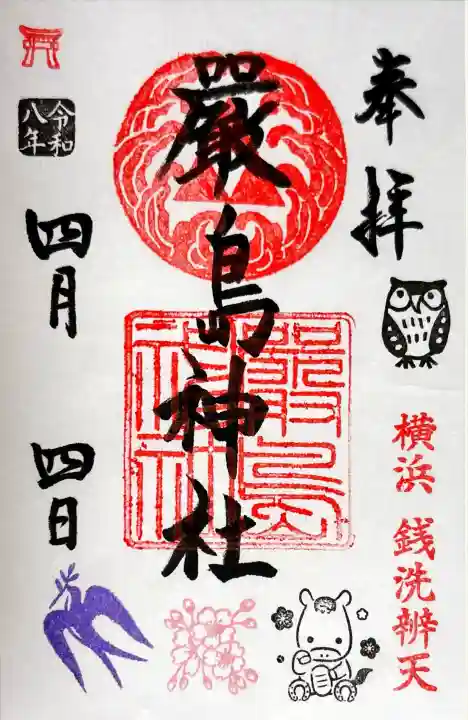 奉拝
横浜 銭洗辨天
嚴島神社
令和
八年
四月
四日